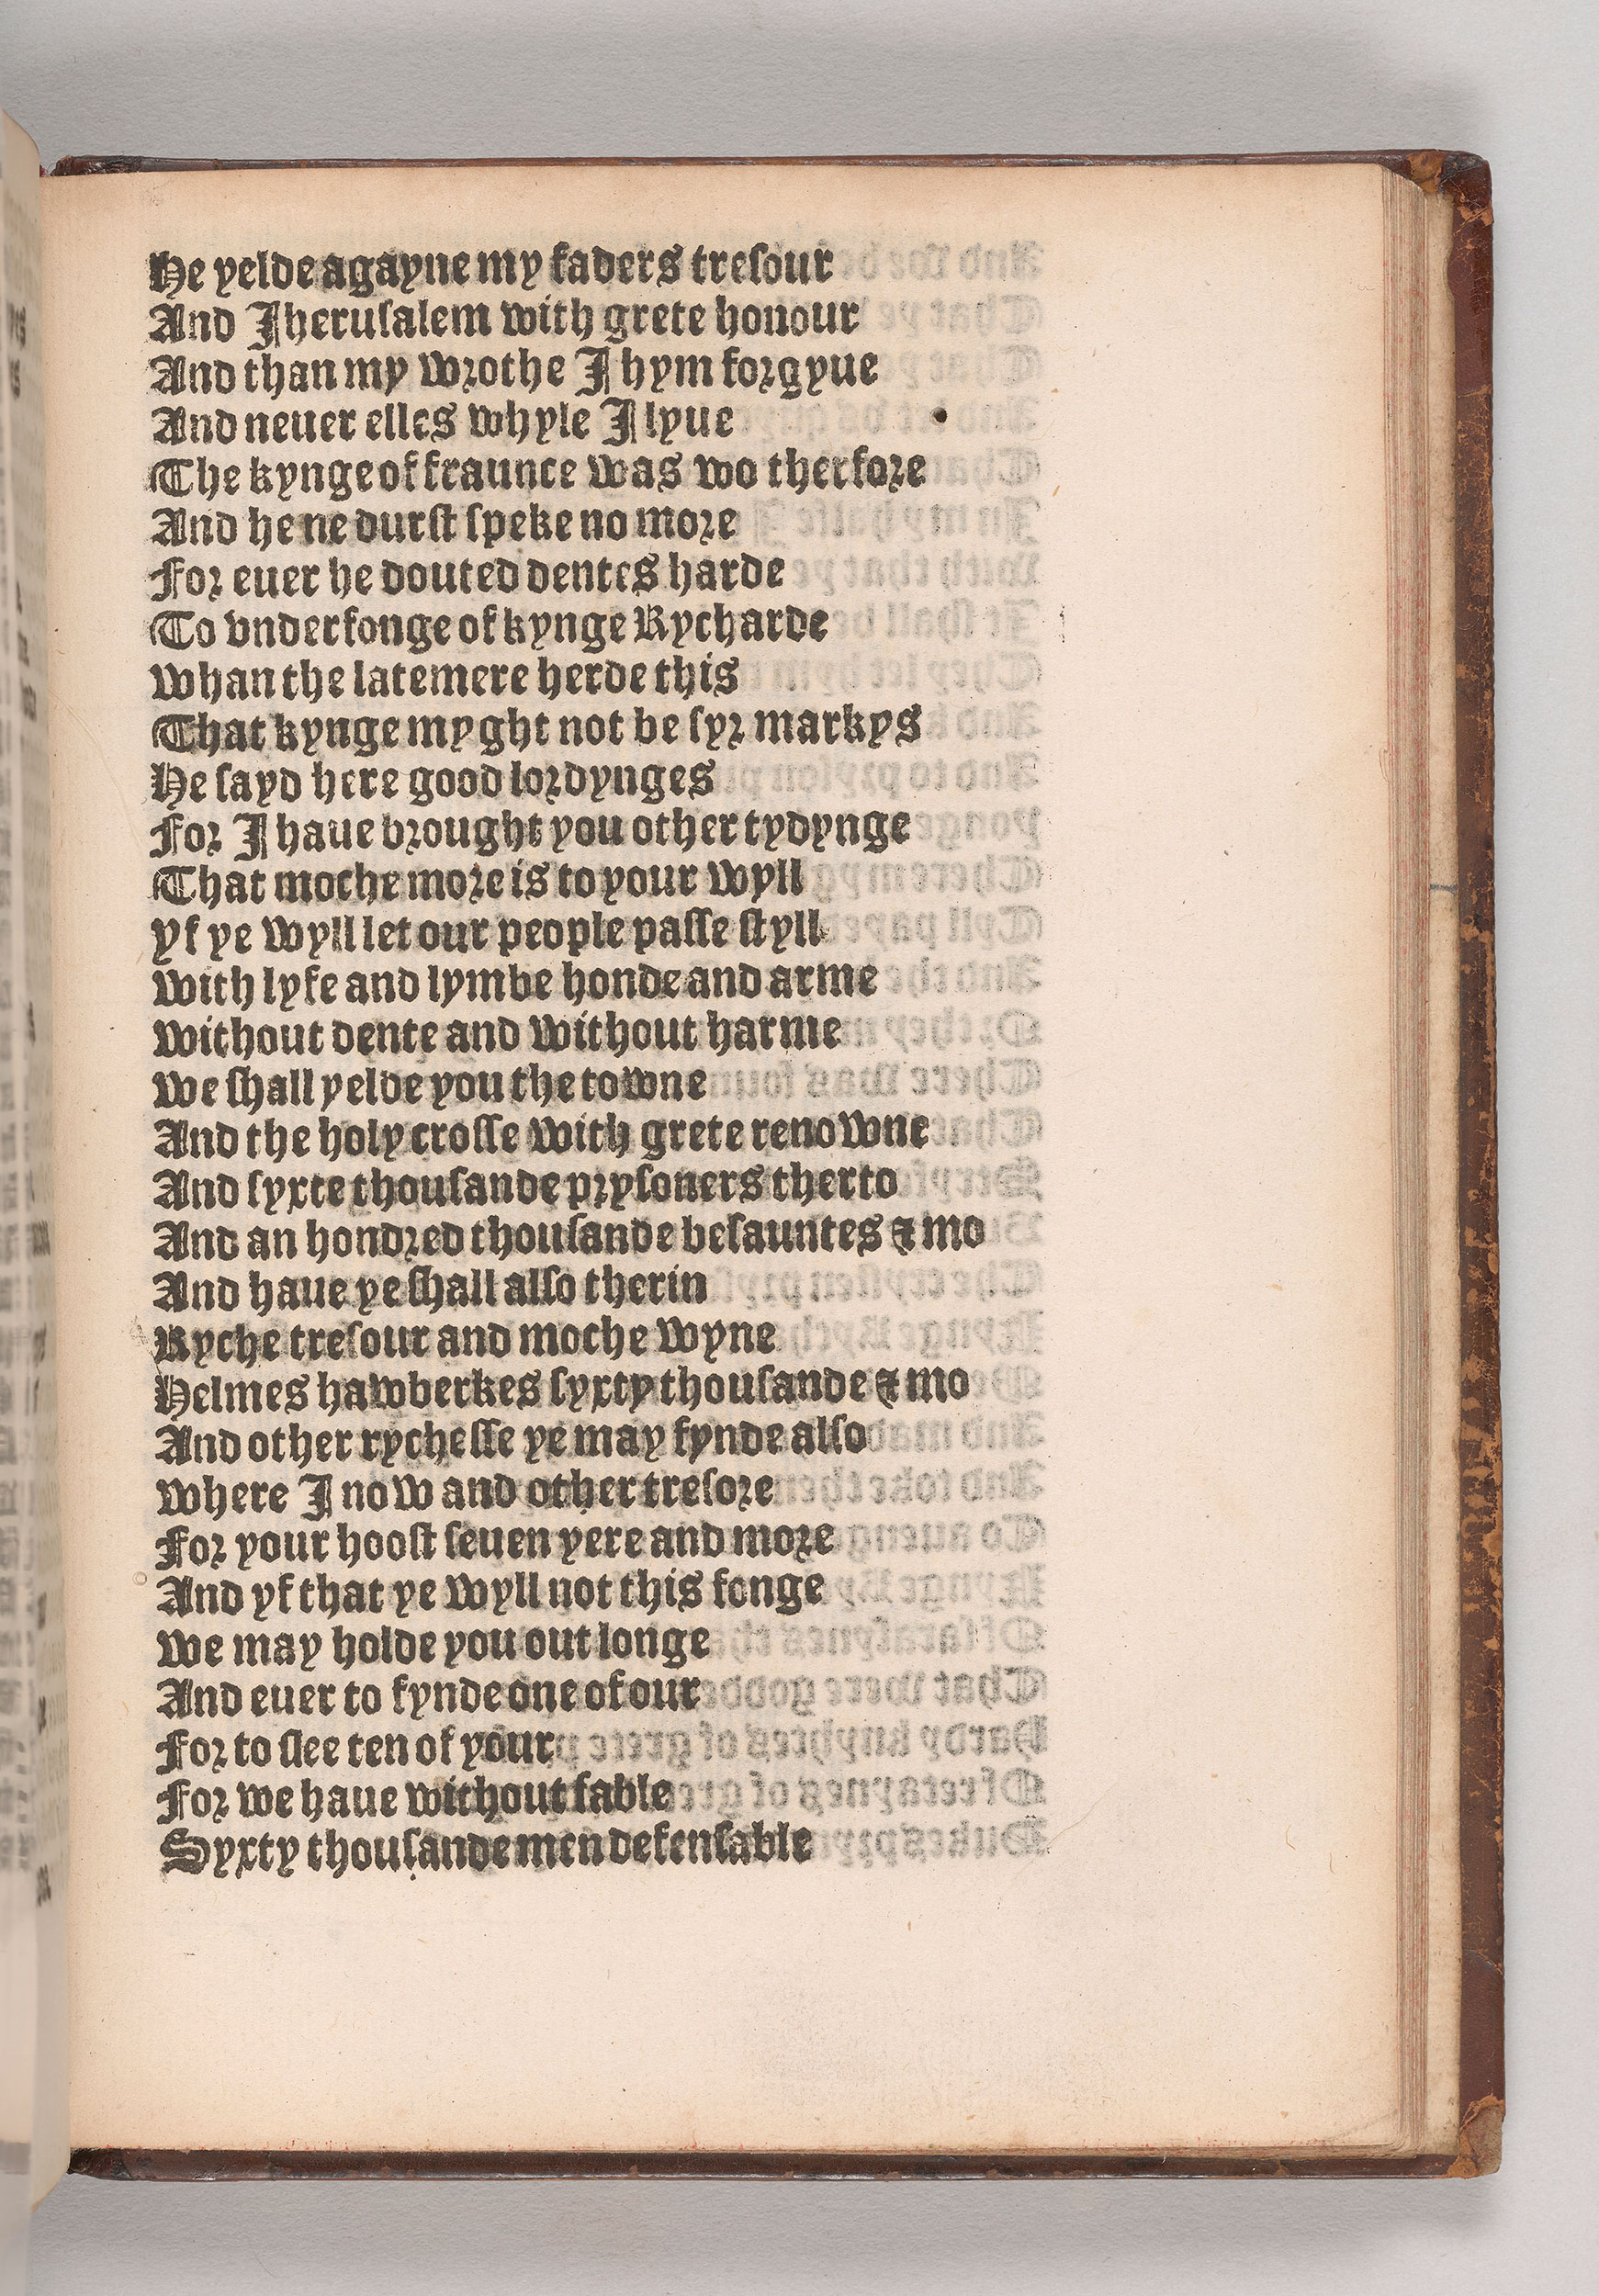 He yelde agayne my faders treſour
And Jheruſalem with grete honour
And than my wrothe J hym forgyue
And neuer elles whyle J lyue
The kynge of fraunce was wo therfore
And he ne durſt ſpeke no more
For euer he douted dentes harde
To vnderfonge of kynge Rycharde
Whan the latemere herde this
That kynge myght not be ſyr markys
He ſayd here good lordynges
For J haue brought you other tydynge
That moche more is to your wyll
yf ye wyll let our people paſſe ſtyll
With lyfe and lymbe honde and arme
Without dente and without harme
We ſhall yelde you the towne
And the holy croſſe with grete renowne
And ſyxte thouſande pryſoners therto
And an hondred thouſande beſauntes & mo
And haue ye ſhall alſo therin
Ryche treſour and moche wyne
Helmes hawberkes ſyxty thouſande & mo
And other rycheſſe ye may fynde alſo
Where J now and other treſore
For your hooſt ſeuen yere and more
And yf that ye wyll not this fonge
We may holde you out longe
And euer to fynde one of our
For to ſlee ten of your
For we haue without fable
Syxty thouſande men defenſable